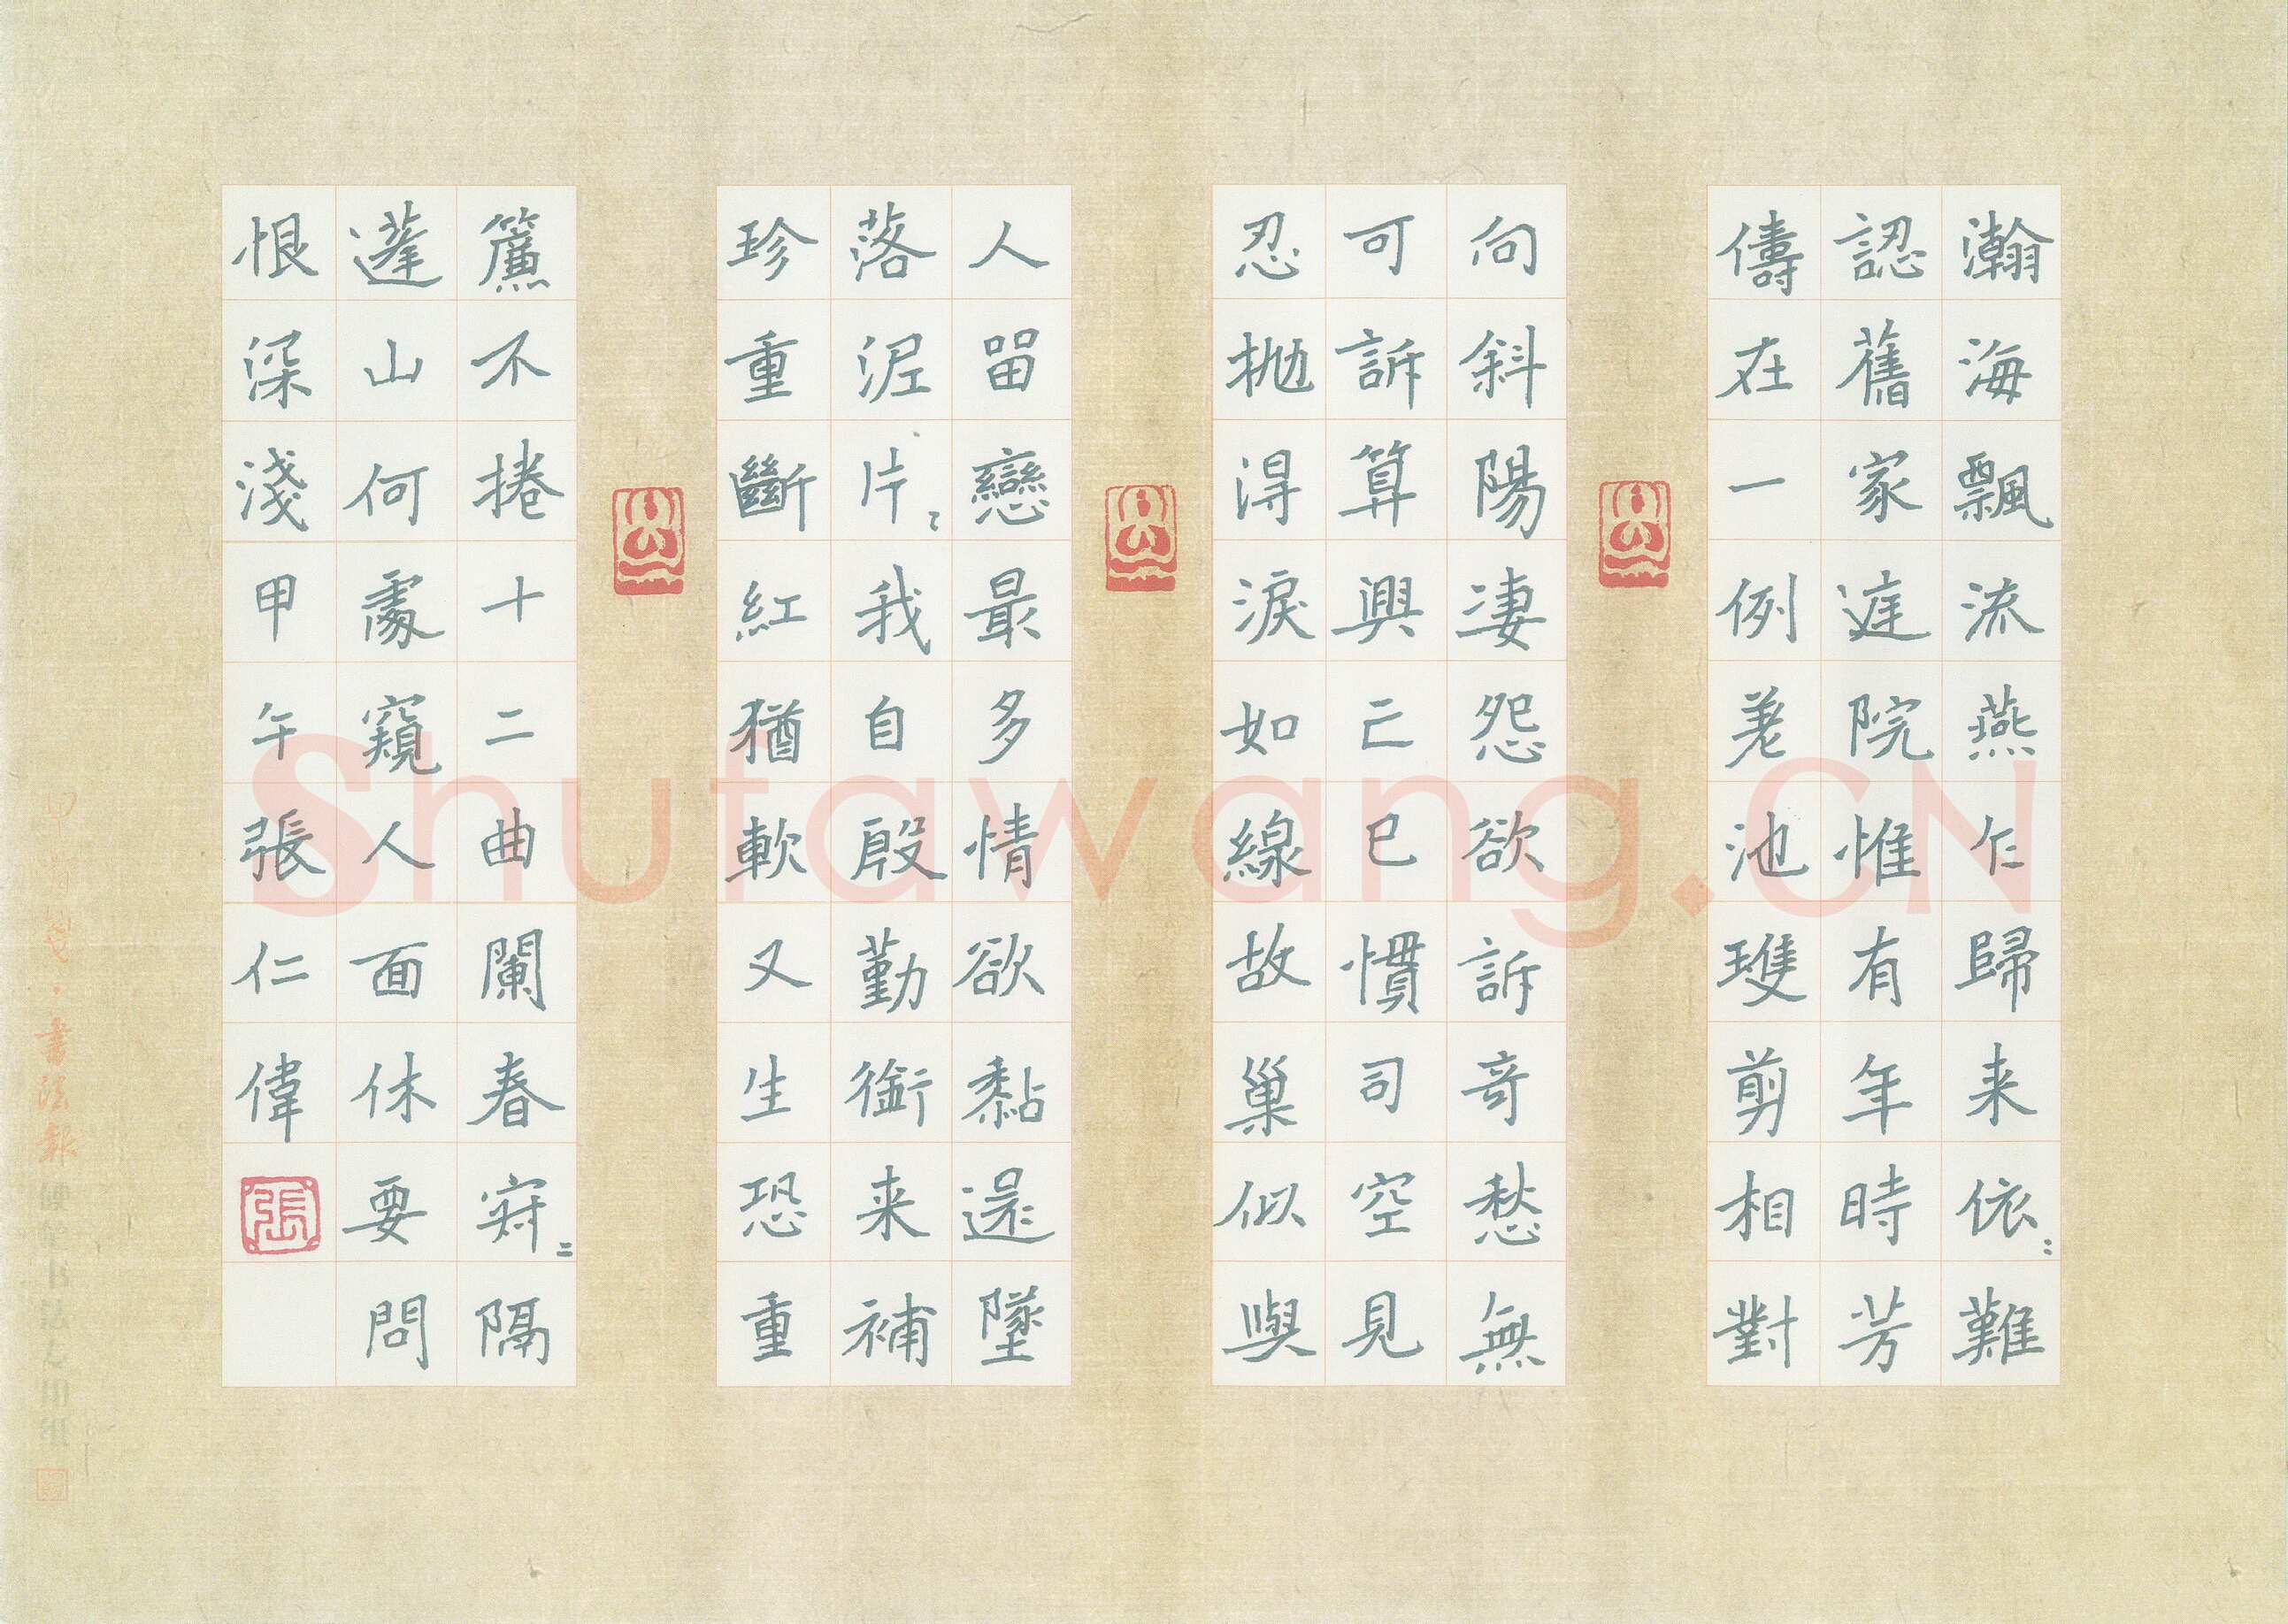 瀚海飄流燕乍歸来依〻難
認舊家庭院惟有年時芳
儔在一例差池雙剪相對
向斜陽凄怨欲訴奇愁無
可訴算興亡已慣司空見
忍抛得淚如線故巢似與
人留戀最多情欲黏還墜
落泥片〻我自殷勤銜来補
珍重斷紅猶軟又生恐重
簾不捲十二曲闌春寂〻隔
蓬山何處窺人面休要問
恨深淺甲午張仁偉
張
Shufawang.CN